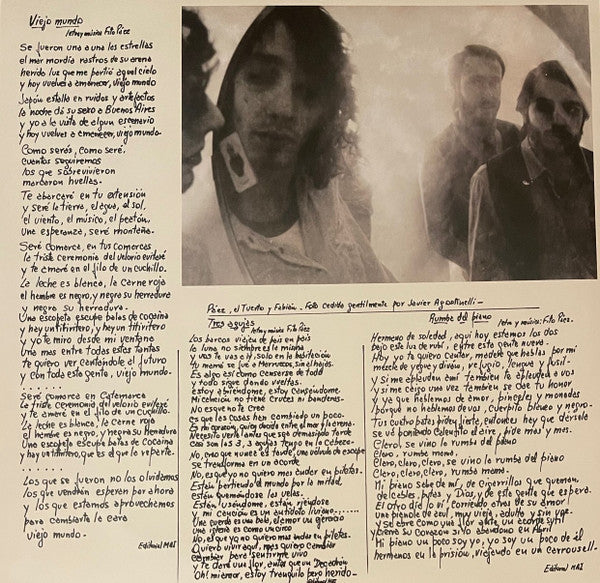 Viejo mundo
letra y música: Fito Páez
Se fueron una a una las estrellas
el mar mordía rastros de su arena
herida luz que me partió aquel cielo
y hoy vuelves a amanecer, viejo mundo
Japón estalla en ruidos y artefactos
la noche dá su sexo a Buenos Aires
y yo a la vista de algun escenario
y hoy vuelves a amanecer, viejo mundo.
Como serás, como seré,
cuantos seguiremos
los que sobrevivieron
marcaron huellas.
Te abarcaré en tu extensión
y seré la tierra, el agua, el sol,
el viento, el músico, el peatón,
Una esperanza, seré montaña.
Seré comarca, en tus comarcas
la triste ceremonia del velorio evitaré
y te amaré en el filo de un cuchillo.
La leche es blanca, la carne roja
el hombre es negro, y negra su herradura
y negra su herradura.
Una escopeta escupe balas de cocaína
y hay un titiritero, y hay un titiritero
y yo te miro desde mi ventana
Una mas entre todas estas tantas
te quiero ver cantándole al futuro
y con toda esta gente, viejo mundo.
Seré comarca en Catamarca
la triste ceremonia del velorio evitaré
y te amaré en el filo de un cuchillo.
La leche es blanca, la carne roja
el hombre es negro, y negra su herradura
Una escopeta escupe balas de cocaína
y hay un titiritero, que es el que la reparte.
.......
Los que se fueron no los olvidamos
los que vendrán esperan por ahora
y los que estamos aprovechemos
para cambiarle la cara
Viejo mundo.
Editorial MAI
Páez, el Tuerto y Fabián. Foto cedida gentilmente por Javier Agostinelli
Tres agujas
letra y música Fito Páez
Los barcos viajan de país en país
la luna no siempre es la misma
y vos te vas a ir, solo en la habitación
tu mamá se fué a Marruecos, sin alhajas.
Es algo así como cansarse de todo
y todo sigue dando vueltas.
estoy quemándome, estoy cansándome.
Mi canción no tiene cruces ni banderas.
No es que no te crea
es que las cosas han cambiado un poco.
En mi corazón, quizá quede entre el mar y la arena.
Necesito verte antes que sea demasiado tarde
casi son las 3, 3 agujas tengo en la cabeza.
No, creo que nunca es tarde, una válvula de escape
se transforma en un acorde
No, es que yo no quiero mas cuidar en piletas.
Están partiendo al mundo por la mitad,
están quemándose las velas.
Están usándome, están riéndose
y mi canción es un antídoto liviano......
Una cuerda es una bala, el amor un ejercicio
una iglesia es como un circo
No, es que yo no quiero mas nadar en piletas.
Quiero vivir aquí, mas quiero cambiar
cambiar para sentirme vivo
y te daré una flor, antes que un Decadrón
Oh! mi amor, estoy tranquilo pero herido.
Editorial MAI
Rumba del piano
letra y música: Fito Páez.
Hermano de soledad, aquí hoy estamos los dos
bajo esta luz de rubí, entre esta gente nueva.
Hoy yo te quiero cantar, madera que hablas por mí
mezcla de yegua y diván, refugio, lengua y fusil.
Y si me aplauden a mí también te aplauden a vos
y si me caigo una vez también se cae tu honor
y ya que hablamos de amor, pinceles y monadas
porqué no hablamos de vos, cuerpito blanco y negro.
Tus cuatro patas piden fiesta, entonces hay que dársela
se vá poniendo calentito el aire, pide mas y mas.
Claro, se vino la rumba del piano
Claro, rumba mama.
Claro, claro, claro, se vino la rumba del piano
Claro, claro, claro, rumba mama.
Mi piano sabe de mí, de cigarrillos que queman,
de cables, patas y Dios, y de esta gente que espera.
El otro día lo ví, corriendo atrás de su amor
una pianola de azul, muy vieja, adulta y sin
y se abre como una flor ante un acorde sutil
y cierra su corazón si lo abandono en Abril
Mi piano un poco soy yo, yo soy un poco de él
hermanos en la prisión, viajando en un carrousell.
Editorial MAI